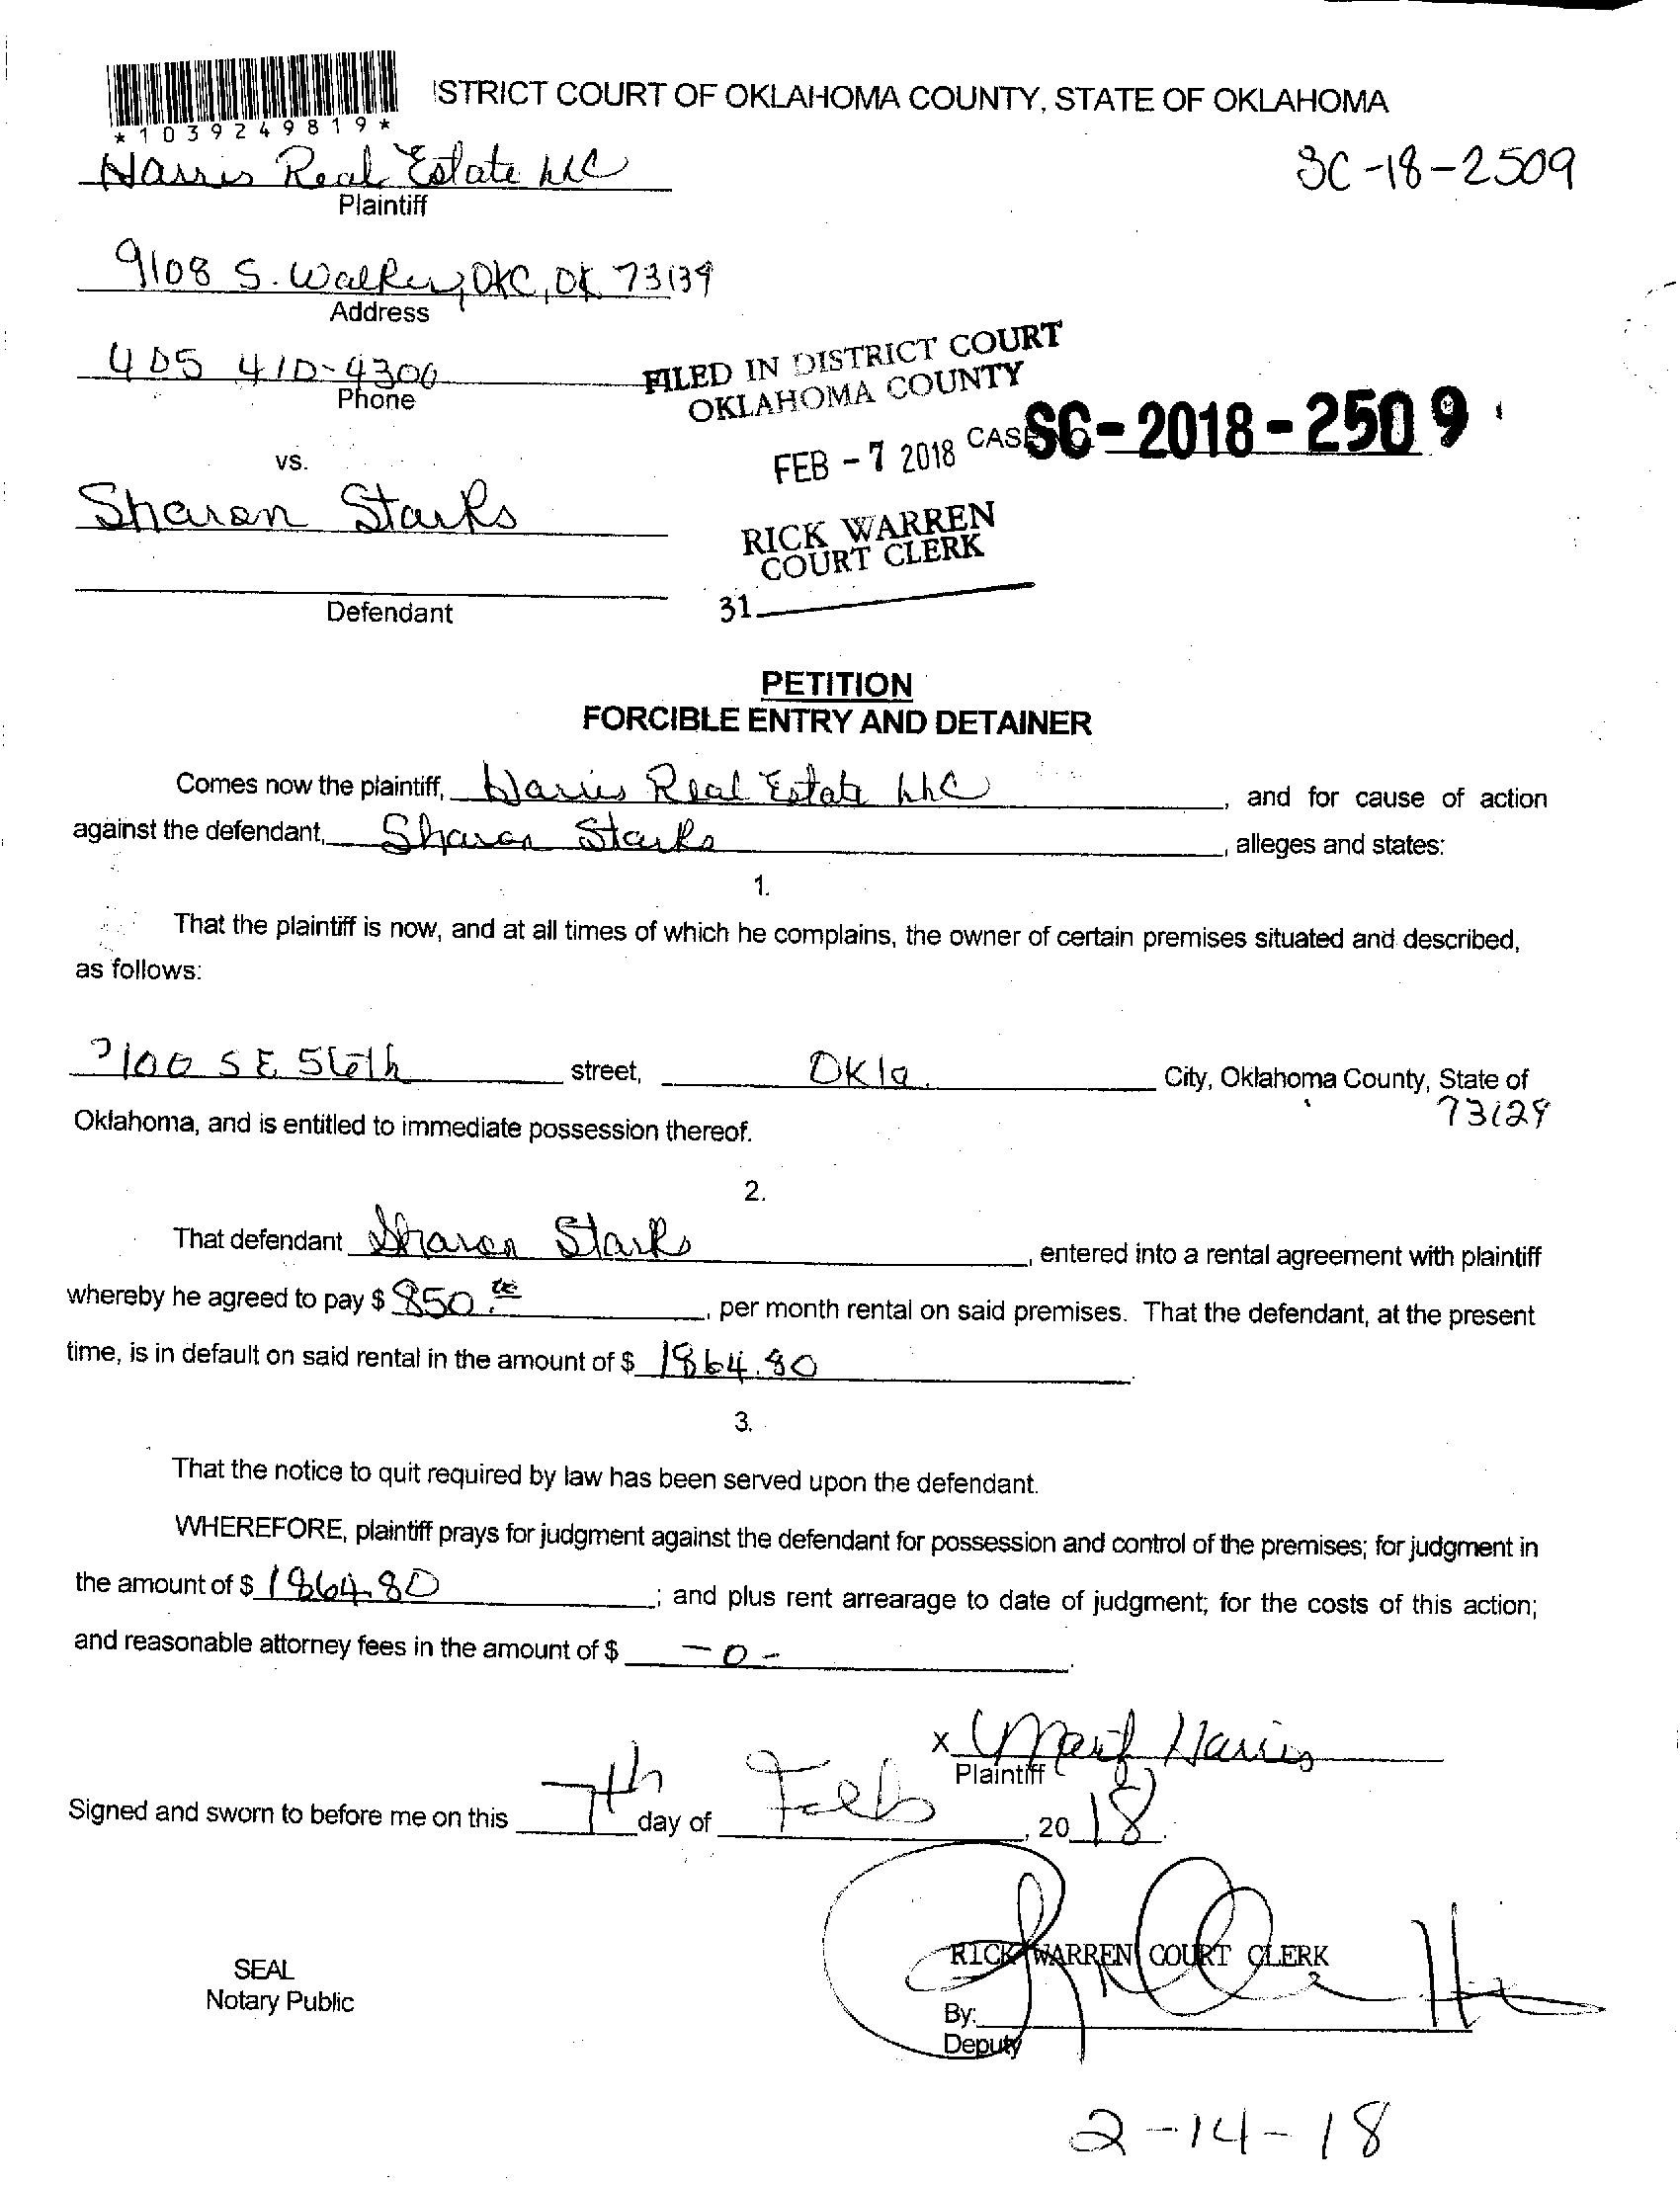 ISTRICT COURT OF OKLAHOMA COUNTY, STATE OF OKLAHOMA
*1039249819*
Harris Real Estate LLC
SC-18-2509
Plaintiff
9108 S. Walker, OKC, OK 73139
Address
405 410-4300
Phone
FILED IN DISTRICT COURT
OKLAHOMA COUNTY
FEB - 7 2018
CAS SC-2018-2509
vs.
Sharon Starks
RICK WARREN
COURT CLERK
31
Defendant
PETITION
FORCIBLE ENTRY AND DETAINER
Comes now the plaintiff, Harris Real Estate LLC, and for cause of action
against the defendant, Sharon Starks, alleges and states:
1.
That the plaintiff is now, and at all times of which he complains, the owner of certain premises situated and described,
as follows:
100 SE 56th street, Okla. City, Oklahoma County, State of
73129
Oklahoma, and is entitled to immediate possession thereof.
2.
That defendant Sharon Starks, entered into a rental agreement with plaintiff
whereby he agreed to pay $ 850., per month rental on said premises. That the defendant, at the present
time, is in default on said rental in the amount of $ 1864.80.
3.
That the notice to quit required by law has been served upon the defendant.
WHEREFORE, plaintiff prays for judgment against the defendant for possession and control of the premises; for judgment in
the amount of $ 1864.80; and plus rent arrearage to date of judgment; for the costs of this action;
and reasonable attorney fees in the amount of $ -0-.
x Harris
Plaintiff
Signed and sworn to before me on this 7th day of Feb, 2018.
RICK WARREN COURT CLERK
SEAL
Notary Public
By:
Deputy
2-14-18